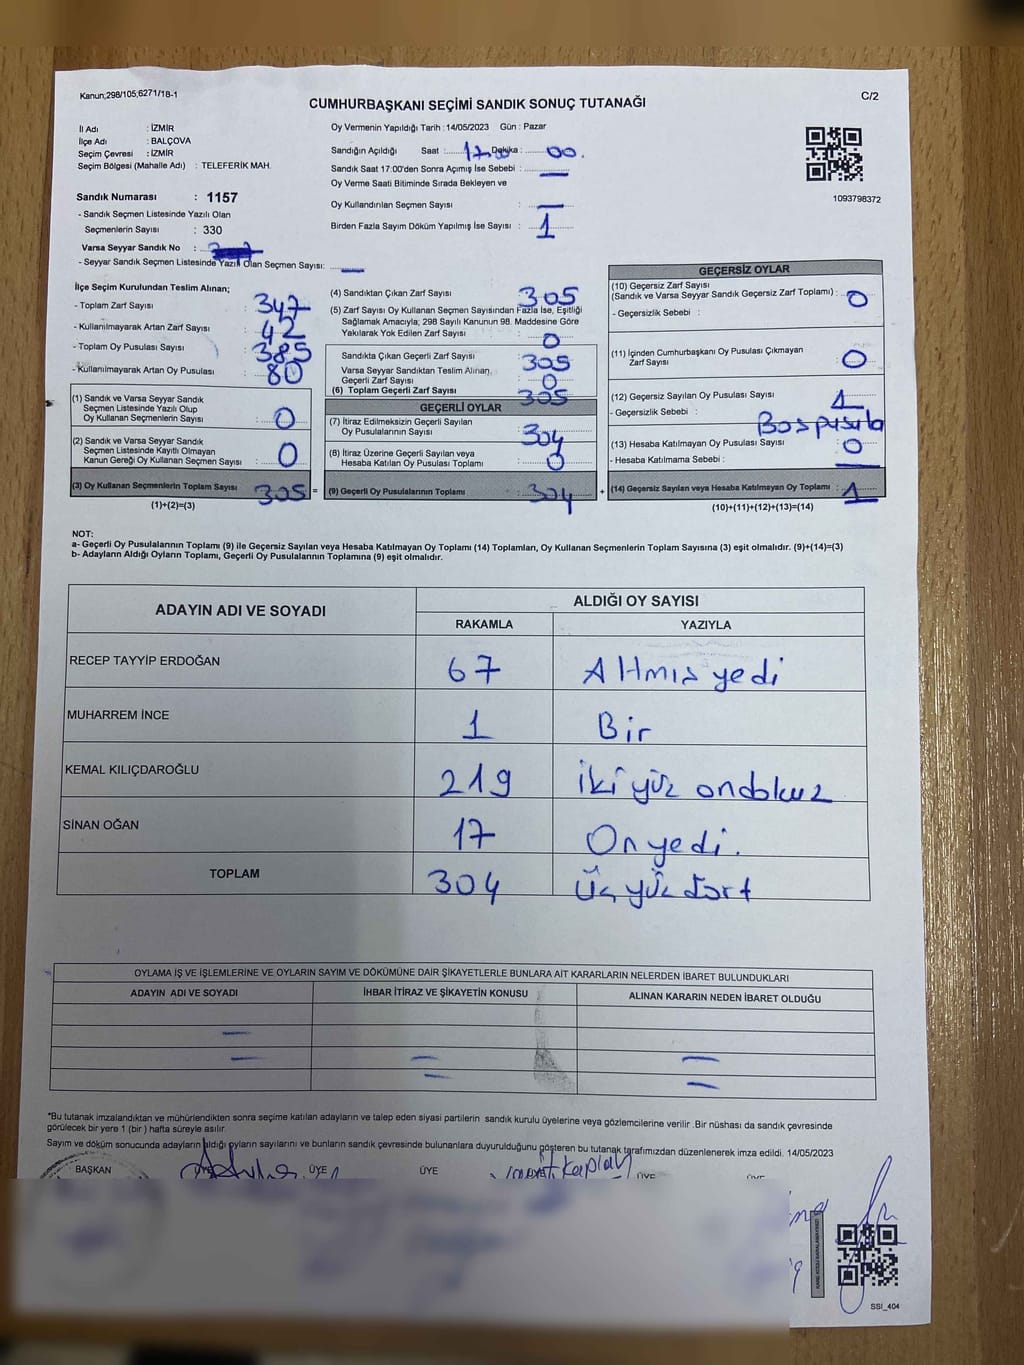 Kanun;298/105;6271/18-1
C/2
CUMHURBAŞKANI SEÇİMİ SANDIK SONUÇ TUTANAĞI
İl Adı : İZMİR
İlçe Adı : BALÇOVA
Seçim Çevresi : İZMİR
Seçim Bölgesi (Mahalle Adı) : TELEFERİK MAH.
Oy Vermenin Yapıldığı Tarih : 14/05/2023 Gün : Pazar
Sandığın Açıldığı Saat : Dakika : 00.
Sandık Saat 17:00'den Sonra Açımış İse Sebebi :
Oy Verme Saati Bitiminde Sırada Bekleyen ve
Oy Kullandırılan Seçmen Sayısı :
Birden Fazla Sayım Döküm Yapılmış İse Sayısı : 1
1093798372
Sandık Numarası : 1157
- Sandık Seçmen Listesinde Yazılı Olan
Seçmenlerin Sayısı : 330
Varsa Seyyar Sandık No :
- Seyyar Sandık Seçmen Listesinde Yazılı Olan Seçmen Sayısı:
İlçe Seçim Kurulundan Teslim Alınan;
- Toplam Zarf Sayısı : 347
- Kullanılmayarak Artan Zarf Sayısı : 42
- Toplam Oy Pusulası Sayısı : 385
- Kullanılmayarak Artan Oy Pusulası : 80
(1) Sandık ve Varsa Seyyar Sandık
Seçmen Listesinde Yazılı Olup
Oy Kullanan Seçmenlerin Sayısı : 0
(2) Sandık ve Varsa Seyyar Sandık
Seçmen Listesinde Kayıtlı Olmayan
Kanun Gereği Oy Kullanan Seçmen Sayısı : 0
(3) Oy Kullanan Seçmenlerin Toplam Sayısı 305 =
(1)+(2)=(3)
(4) Sandıktan Çıkan Zarf Sayısı : 305
(5) Zarf Sayısı Oy Kullanan Seçmen Sayısından Fazla İse, Eşitliği
Sağlamak Amacıyla; 298 Sayılı Kanunun 98. Maddesine Göre
Yakılarak Yok Edilen Zarf Sayısı : 0
Sandıkta Çıkan Geçerli Zarf Sayısı : 305
Varsa Seyyar Sandıktan Teslim Alınan,
Geçerli Zarf Sayısı : 0
(6) Toplam Geçerli Zarf Sayısı : 305
GEÇERLİ OYLAR
(7) İtiraz Edilmeksizin Geçerli Sayılan
Oy Pusulalarının Sayısı : 304
(8) İtiraz Üzerine Geçerli Sayılan veya
Hesaba Katılan Oy Pusulası Toplamı : 0
(9) Geçerli Oy Pusulalarının Toplamı : 304 +
GEÇERSİZ OYLAR
(10) Geçersiz Zarf Sayısı
(Sandık ve Varsa Seyyar Sandık Geçersiz Zarf Toplamı) : 0
- Geçersizlik Sebebi :
(11) İçinden Cumhurbaşkanı Oy Pusulası Çıkmayan
Zarf Sayısı : 0
(12) Geçersiz Sayılan Oy Pusulası Sayısı : 1
- Geçersizlik Sebebi : Boş pusula
(13) Hesaba Katılmayan Oy Pusulası Sayısı : 0
- Hesaba Katılmama Sebebi :
(14) Geçersiz Sayılan veya Hesaba Katılmayan Oy Toplamı : 1
(10)+(11)+(12)+(13)=(14)
NOT:
a- Geçerli Oy Pusulalarının Toplamı (9) ile Geçersiz Sayılan veya Hesaba Katılmayan Oy Toplamı (14) Toplamları, Oy Kullanan Seçmenlerin Toplam Sayısına (3) eşit olmalıdır. (9)+(14)=(3)
b- Adayların Aldığı Oyların Toplamı, Geçerli Oy Pusulalarının Toplamına (9) eşit olmalıdır.
ADAYIN ADI VE SOYADI
ALDIĞI OY SAYISI
RAKAMLA YAZIYLA
RECEP TAYYİP ERDOĞAN 67 Altmış yedi
MUHARREM İNCE 1 Bir
KEMAL KILIÇDAROĞLU 219 iki yüz ondokuz
SİNAN OĞAN 17 On yedi.
TOPLAM 304 Üç yüz dört
OYLAMA İŞ VE İŞLEMLERİNE VE OYLARIN SAYIM VE DÖKÜMÜNE DAİR ŞİKAYETLERLE BUNLARA AİT KARARLARIN NELERDEN İBARET BULUNDUKLARI
ADAYIN ADI VE SOYADI İHBAR İTİRAZ VE ŞİKAYETİN KONUSU ALINAN KARARIN NEDEN İBARET OLDUĞU
*Bu tutanak imzalandıktan ve mühürlendikten sonra seçime katılan adayların ve talep eden siyasi partilerin sandık kurulu üyelerine veya gözlemcilerine verilir .Bir nüshası da sandık çevresinde
görülecek bir yere 1 (bir ) hafta süreyle asılır.
Sayım ve döküm sonucunda adayların aldığı oyların sayılarını ve bunların sandık çevresinde bulunanlara duyurulduğunu gösteren bu tutanak tarafımızdan düzenlenerek imza edildi. 14/05/2023
BAŞKAN ÜYE ÜYE ÜYE Kaplan ÜYE ÜYE
SSI_404